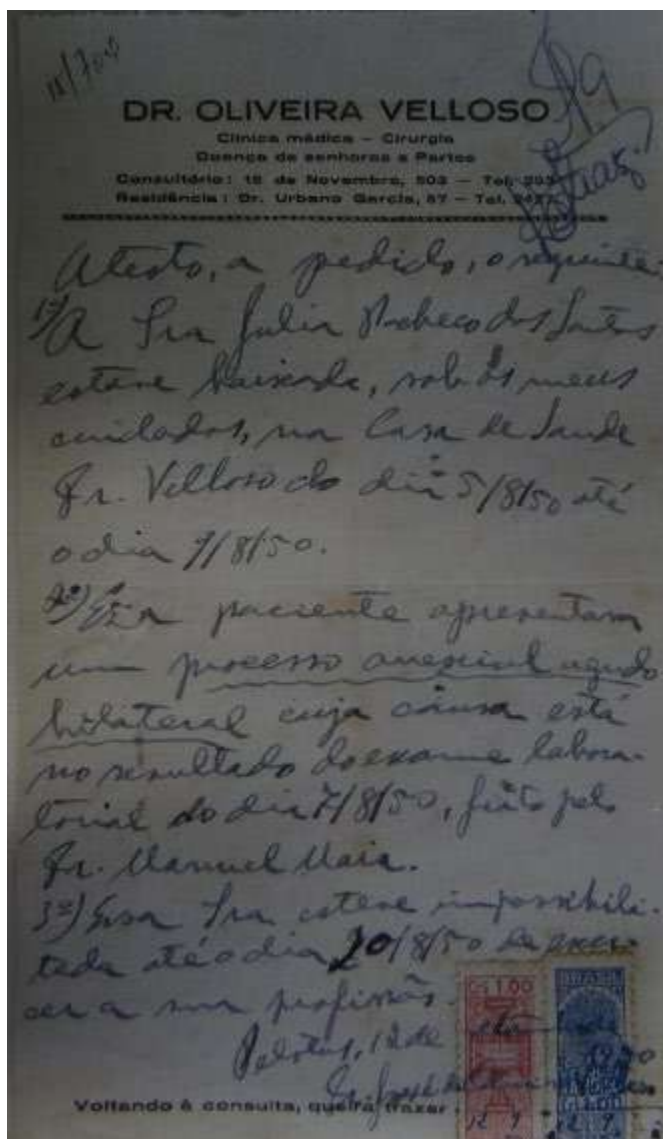 DR. OLIVEIRA VELLOSO
Clinica médica - Cirurgia
Doença de senhoras e Partos
Consultório: 15 de Novembro, 503 - Tel.
Residência: Dr. Urbano Garcia, 57 - Tel.
Atesto, a pedido, o seguinte:
1º) A Sra Julia Pacheco dos Santos
esteve baixada, sob os meus
cuidados, na Casa de Saude
Dr. Velloso do dia 5/8/50 até
o dia 9/8/50.
2º) Essa paciente apresentava
um processo anexial agudo
bilateral cuja causa está
no resultado do exame labora-
torial do dia 7/8/50, feito pelo
Dr. Manuel Maia.
3º) Essa Sra esteve impossibili-
tada até o dia 20/8/50 de exer-
cer a sua profissão.
Pelotas, 12 de
Voltando à consulta, queira trazer
Cr$ 1,00
BRASIL
12 9
12 9